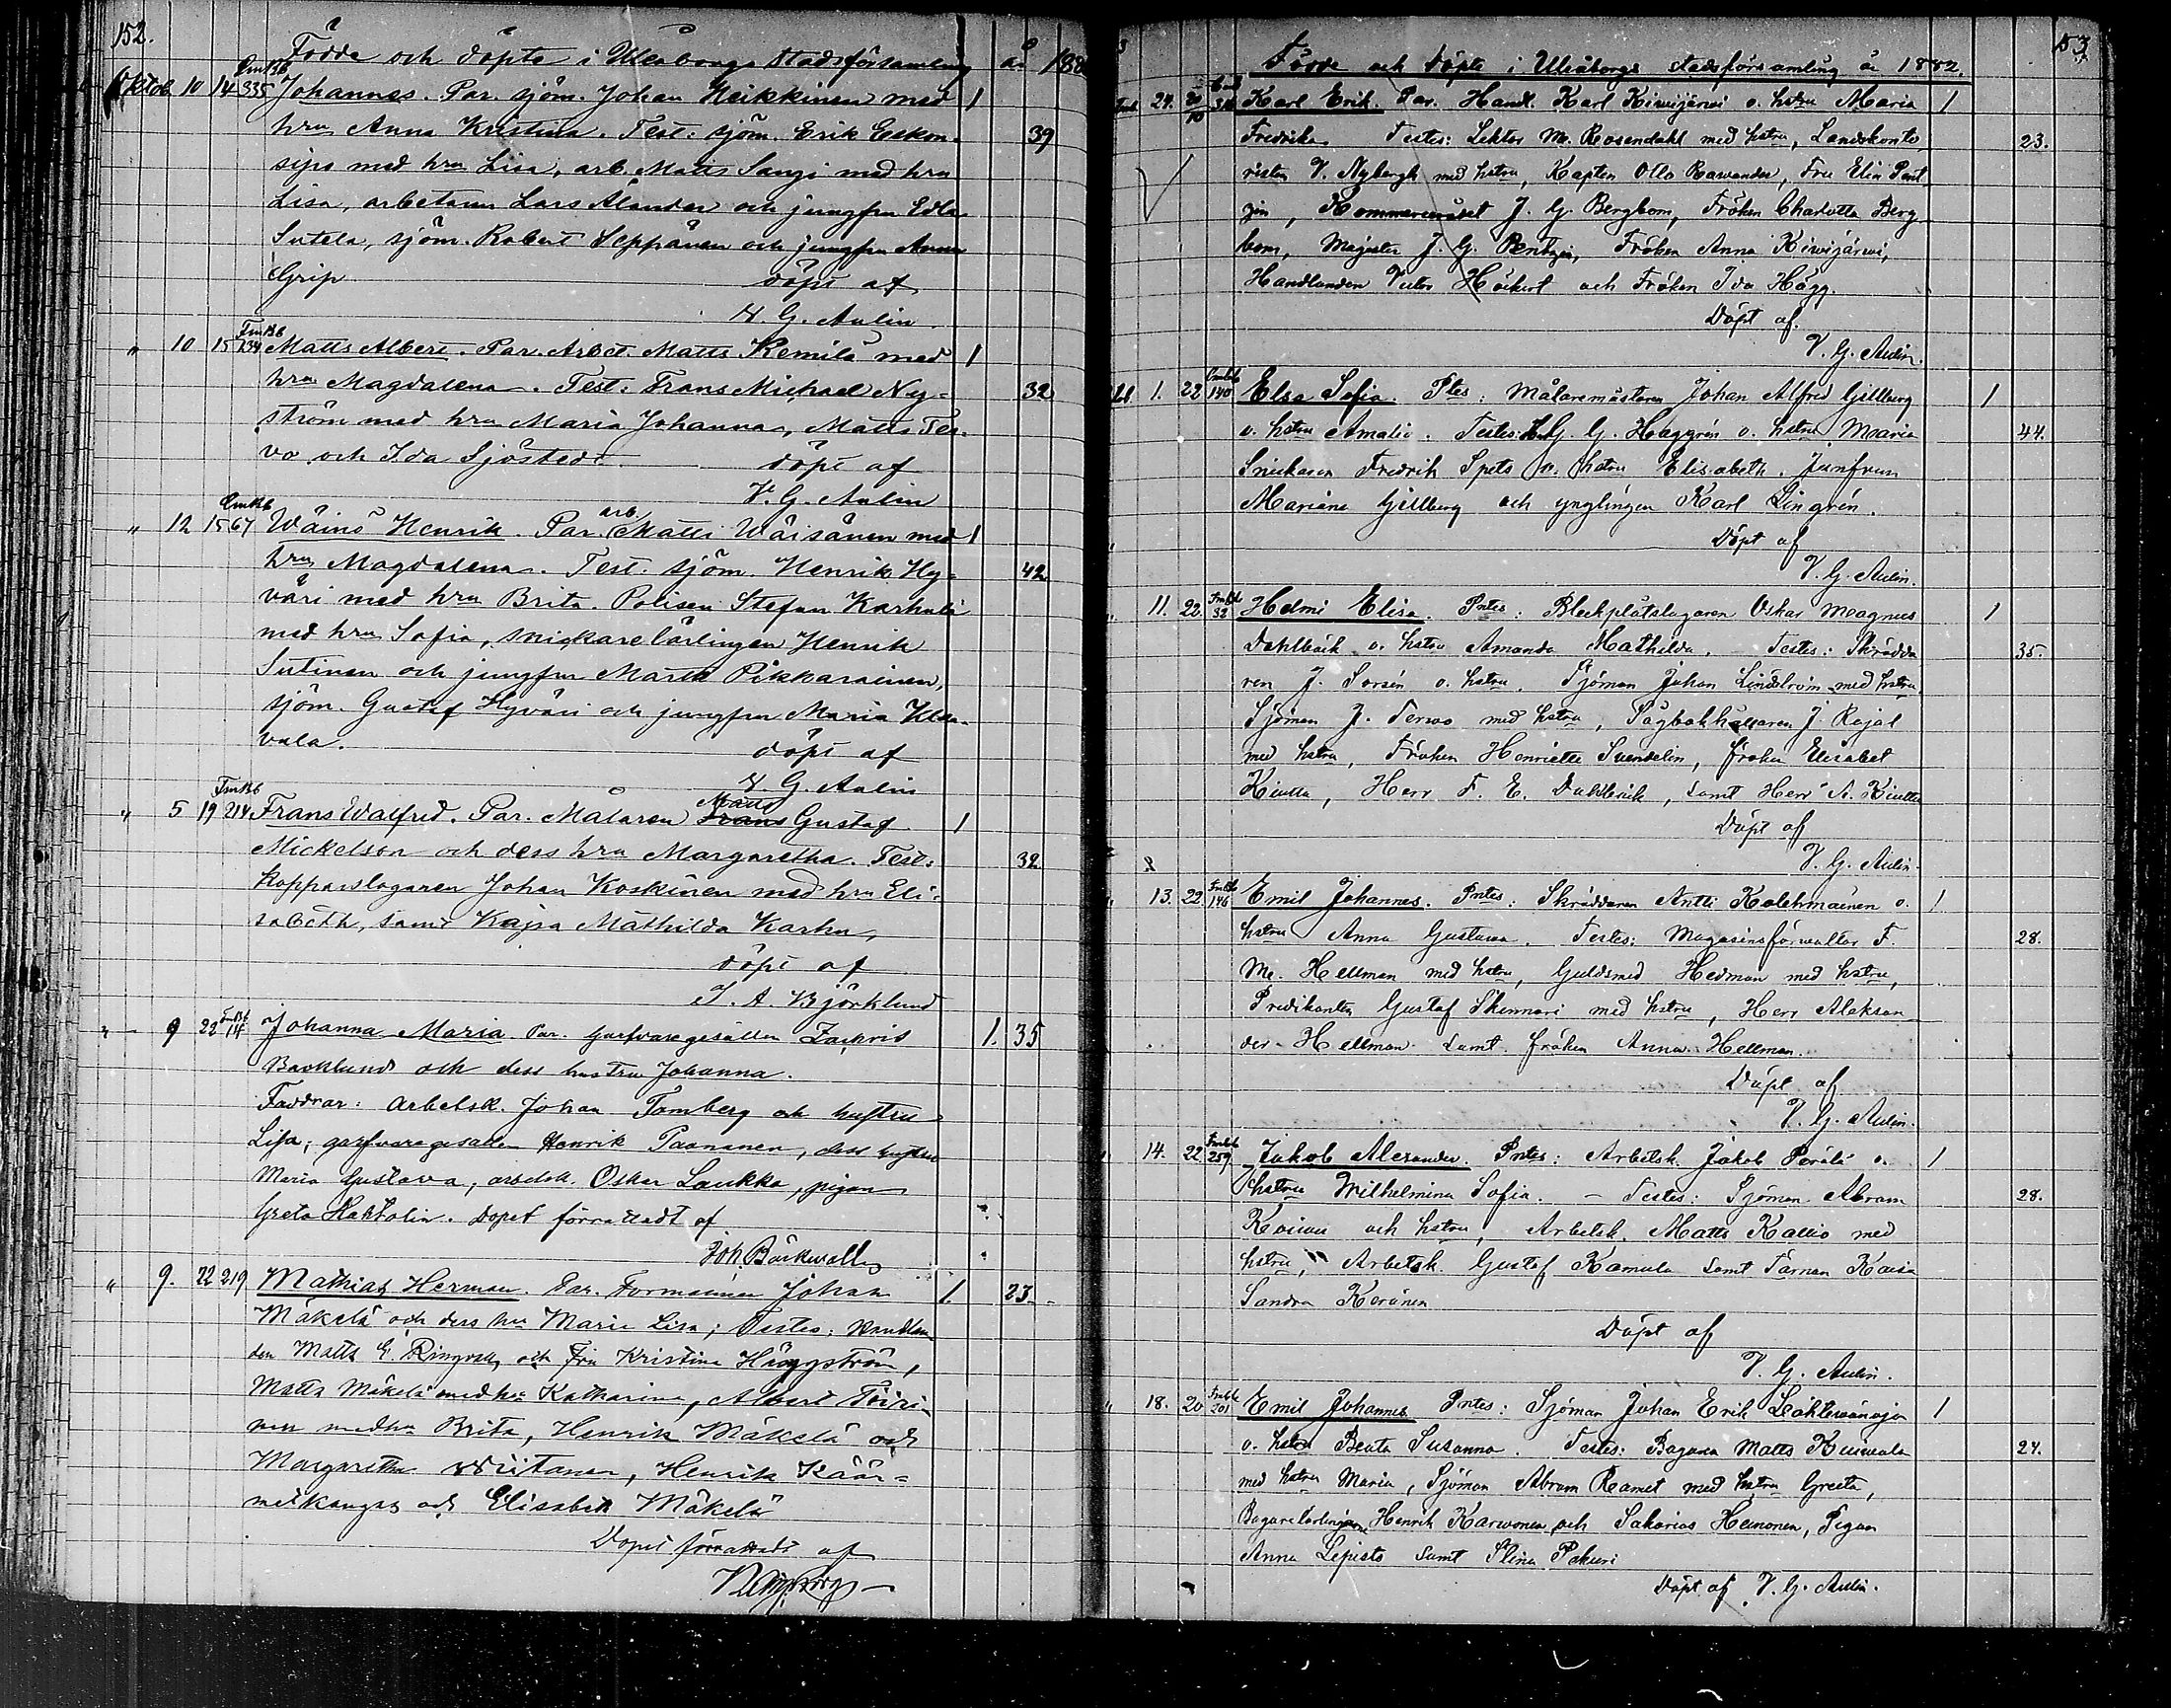 152.
Födde och döpte i Uleåborgs stadsförsamling år 188
Oktob. 10 14 335 Johannes. Par. sjöm. Johan Heikkinen med 1
hru Anna Kristina. Test: sjöm. Erik Eskon- 39
sipo med hru Lisa, arb. Matts Sangi med hru
Lisa, arbetaren Lars Ålander och jungfru Edla
Sutela, sjöm. Robert Seppänen och jungfru Anna
Grip döpt af
V. G. Aulin.
" 10 15 734 Matts Albert. Par. Arbet. Matts Remilä med 1
hru Magdalena. Test: Frans Michael Ny- 32
ström med hru Maria Johanna, Matts Ter-
vo och Ida Sjöstedt. döpt af
V. G. Aulin
" 12 15 67 Wäinö Henrik. Par. arb Matti Wäisänen med 1
hru Magdalena. Test. sjöm. Henrik Hy- 42
väri med hru Brita. Polisen Stefan Karhula
med hru Sofia, snickarelärlingen Henrik
Sutinen och jungfru Marta Pikkarainen,
sjöm. Gustaf Hyväri och jungfru Maria
vala. döpt af
V. G. Aulin
" 5 19 214 Frans Walfred. Par. Målaren Frans Matts Gustaf 1
Mickelson och dess hru Margaretha. Test: 32
Kopparslagaren Johan Koskinen med hru Eli-
sabeth, samt Kajsa Mathilda Karhu,
döpt af
J. A. Björklund
" 9 22 14 Johanna Maria. Par. Garfvaregesällen Zachris 1. 35
Backlund och dess hustru Johanna.
Faddrar: Arbetsk. Johan Tamberg och hustru
Lisa; garfvaregesällen Henrik Paananen, dess hustru
Maria Gustava, arbetsk. Oskar Laukka, pigan
Greta Hattolin. Dopet förrättadt af
Joh Bäckwall
" 9. 22 219 Mathias Herman. Par. Formannen Johan 1. 23.
Mäkelä och dess hru Maria Lisa; Testes: Handlan
den Matts E. Ringvall och Fru Kristina Häggström,
Matts Mäkelä med hru Katharina, Albert Toiri-
nen med hru Brita, Henrik Mäkelä och
Margaretha Wiitanen, Henrik Käär-
metkangas och Elisabeth Mäkelä
Dopet förrättadt af
53
Födde och Döpte i Uleåborgs stadsförsamling år 1882.
24. 20/10 Karl Erik. Par. Handl. Karl Kiwijärwi o. hstru Maria 1
Fredrika. Testes: Lektor M. Rosendahl med hstru, Landskonto 23.
risten V. Nybergh med hstru, Kapten Otto Rawander, Fru Elin Pent
zin, Kommerserådet J. G. Bergbom, Fröken Charlotta Berg
bom, Magister J. G. Pentzin, Fröken Anna Kiwijärwi,
Handlanden Victor Höckert och Fröken Ida Hägg.
Döpt af.
V. G. Aulin.
1. 22 140 Elsa Sofia. Ptes: Målaremästaren Johan Alfred Gillberg 1
o. hstru Amalia. Testes: G. Häggrén o. hstru Maria 44.
Snickaren Fredrik Spets o. hstru Elisabeth. Junfrun
Mariana Gillberg och ynglingen Karl Lingrén.
Döpt af
V. G. Aulin.
" 11. 22. 32 Helmi Elisa. Pntes: Bleckplåtslagaren Oskar Magnus 1
Dahlbäck o. hstru Amanda Mathilda. Testes: Skrädda 35.
ren J. Sorsén o. hstru. Sjöman Johan Lindström med hstru.
Sjöman J. Terwo med hstru, Sågbokhållaren J. Rajal
med hstru, Fröken Henriette Svendelin, fröken Elisabet
Kiutta, Herr F. E. Dahlbäck, samt Herr A. Kiutta
Döpt af
V. G. Aulin.
" 13. 22. 146 Emil Johannes. Pntes: Skräddaren Antti Kolehmainen o. 1.
hstru Anna Gustava. Testes: Magasinsförwaltar F. 28.
M. Hellman med hstru, Guldsmed Hedman med hstru,
Predikanten Gustaf Skinnari med hstru, Herr Aleksan
der Hellman samt fröken Anna Hellman.
Döpt af
V. G. Aulin.
" 14. 22. 259 Jakob Alexander. Pntes: Arbetsk. Jakob Perälä o. 1
hstru Wilhelmina Sofia. - Testes: Sjöman Abram 28.
Koiwu och hstru, Arbetsk. Matts Kallio med
hstru, Arbetsk. Gustaf Kamula samt Tärnan Kaisa
Sandra Keränen
Döpt af
V. G. Aulin.
" 18. 20 201 Emil Johannes Pntes: Sjöman Johan Erik Lähtewänoja 1
o. hstru Beata Susanna. Testes: Bagaren Matts Kuiwala 24.
med hstru Maria, Sjöman Abram Ramet med hstru Greeta,
Bagarelärlingarne Henrik Karwonen och Sakarias Heinonen, Pigan
Anna Lepisto samt Stina Pakuri
Döpt af V. G. Aulin.